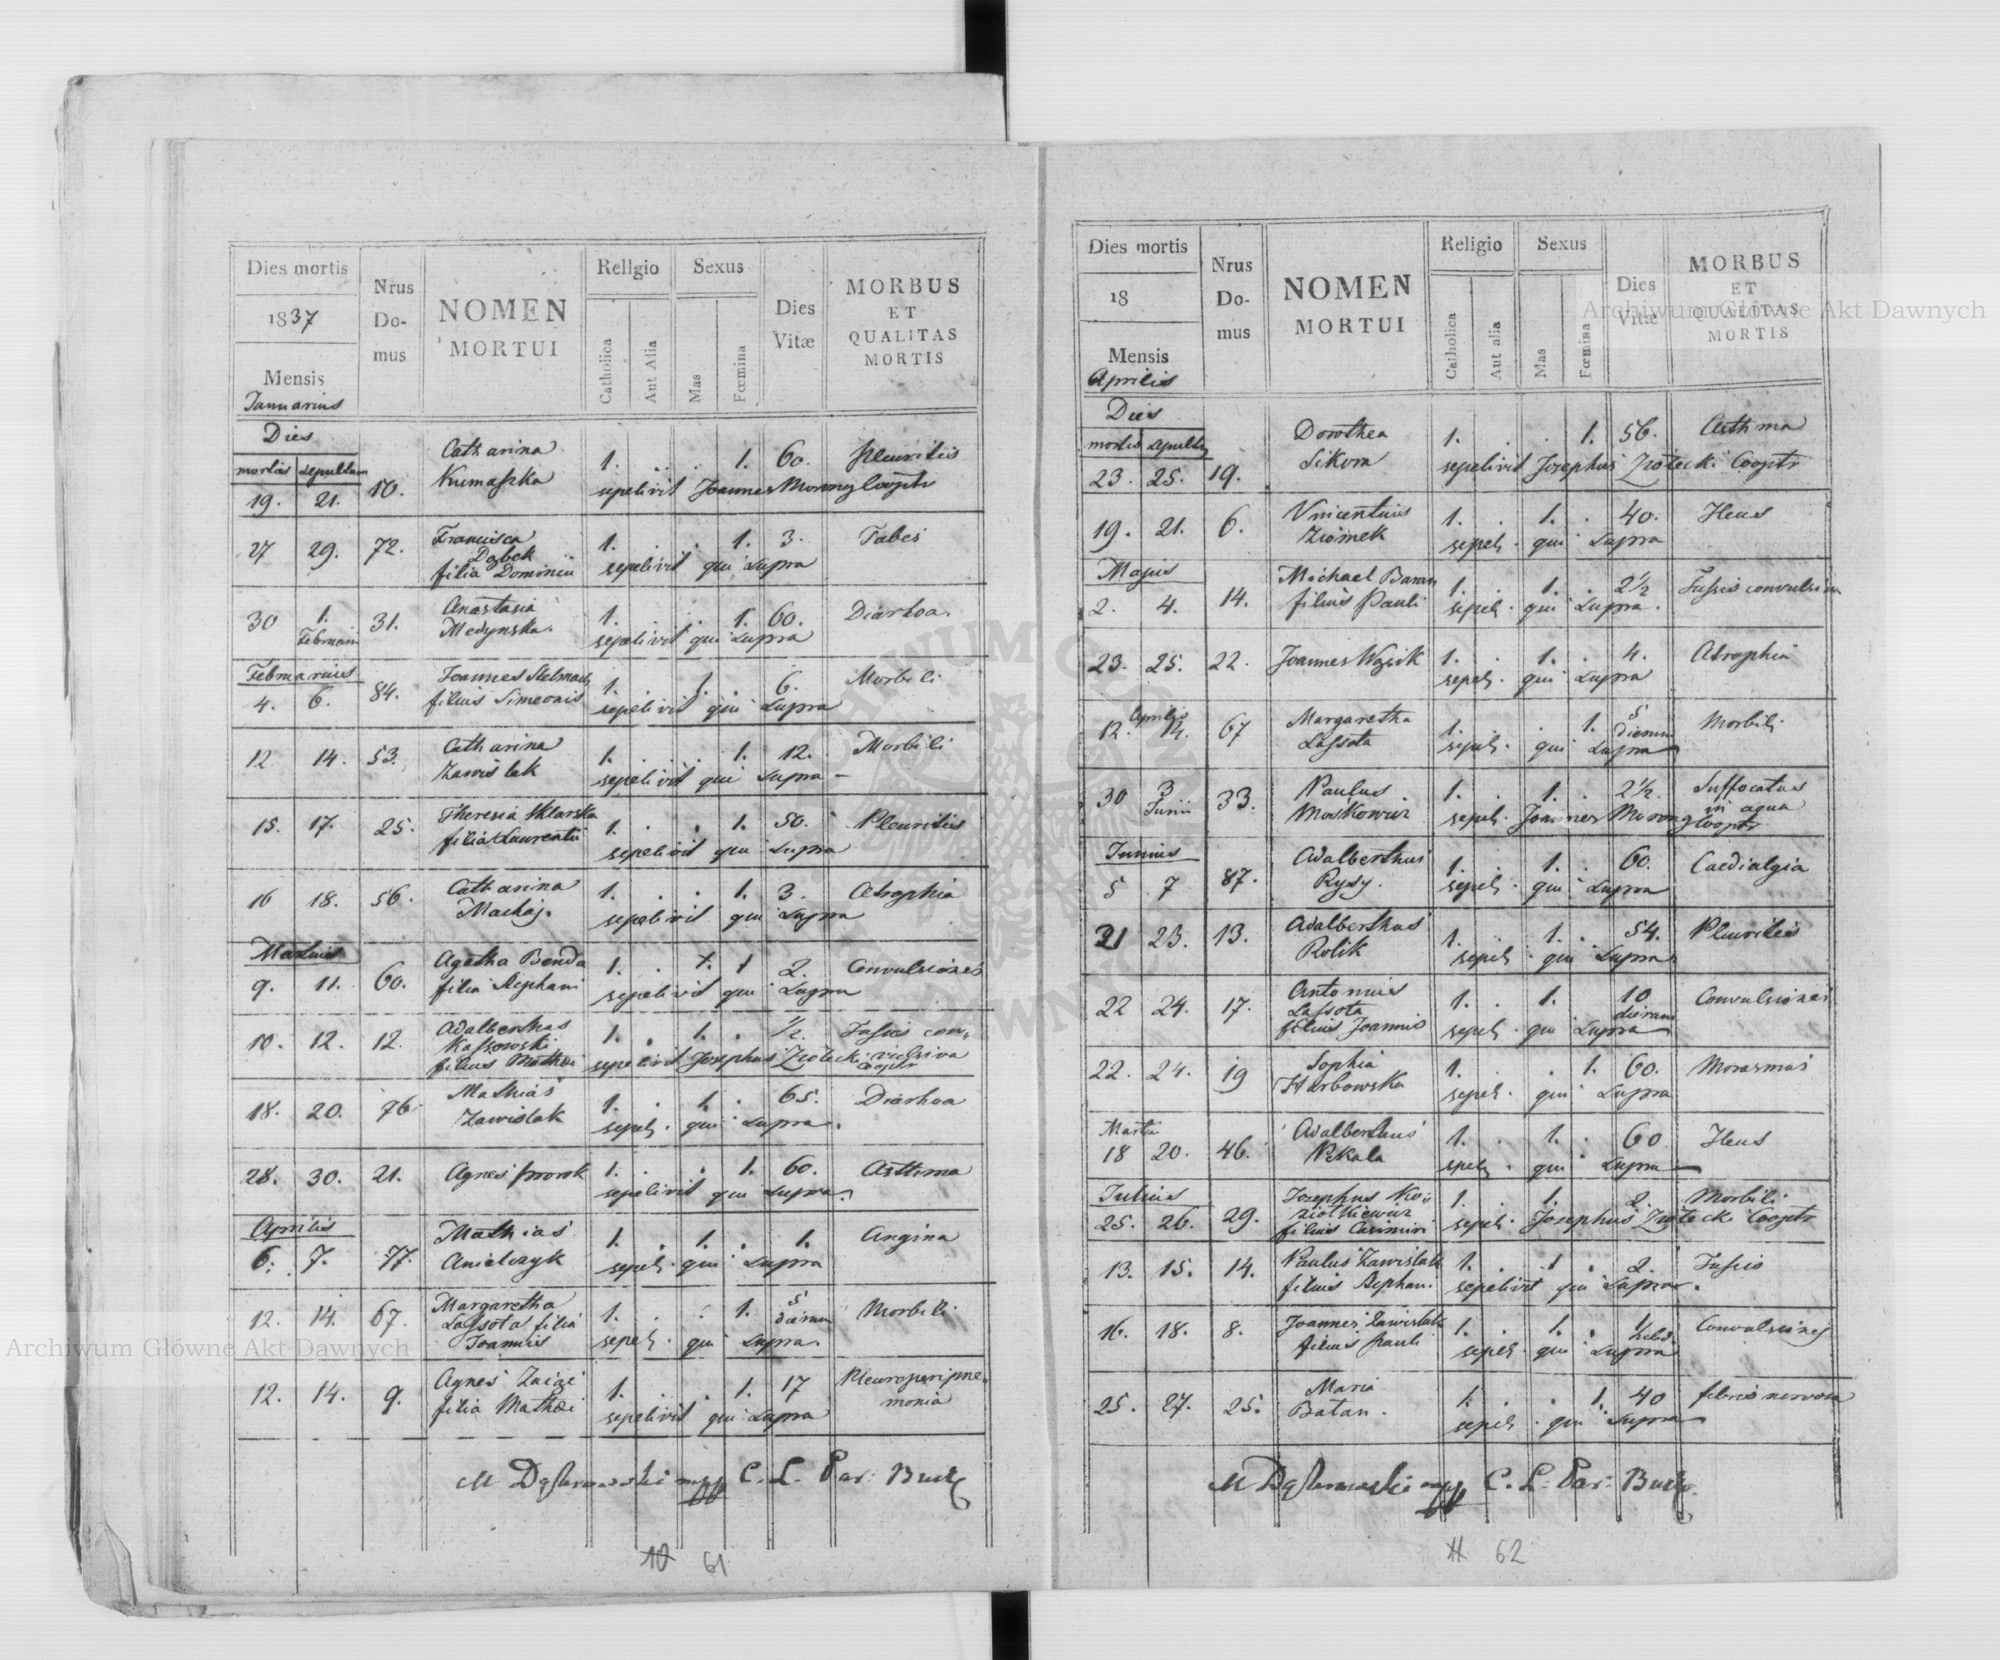 Dies mortis
1837
Mensis
Januarius
Nrus
Do-
mus
NOMEN
MORTUI
Religio
Catholica
Aut Alia
Sexus
Mas
Fœmina
Dies
Vitæ
MORBUS
ET
QUALITAS
MORTIS
Dies
mortis
19. 21. 10. Catharina 1. . . 1. 60. Pleuritis
sepelivit Joannes Cooptr
27 29. 72. Francisca 1. . . 1. 3. Tabes
Dąbek
filia Dominici sepelivit qui supra
30 1. 31. Anastasia 1. . . 1. 60. Diarhoa.
Medynska. sepelivit qui supra
Februarius
4. 6. 84. Joannes Stelmach 1. . 1. . 6. Morbili
filius Simeonis sepelivit qui supra
12 14. 53. Catharina 1. . . 1. 12. Morbili
Zawislak sepelivit qui supra
15. 17. 25. Theresia Sklarska 1. . . 1. 50. Pleuritis
filia Laurentii sepelivit qui supra
16 18. 56. Catharina 1. . . 1. 3. Atrophia
Machaj. sepelivit qui supra
Martius
9. 11. 60. Agatha Benda 1. . 1 2. Convulsiones
filia Stephani sepelivit qui supra
10. 12. 12. Adalberthus 1. . 1. . ½. Tussis con-
vulsiva
filius Mathæi sepelivit Josephus Cooptr
18. 20. 76. Mathias 1. . 1. . 65. Diarhoa
Zawislak sepel. qui supra.
28. 30. 21. Agnes 1. . . 1. 60. Asthma
sepelivit qui supra.
Aprilis
6. 7. 77. Mathias 1. . 1. . 1. Angina
Anielczyk sepel. qui supra
12. 14. 67. Margaretha 1. . . 1. 5 dierum Morbili
Lassota filia
Joannis sepel. qui supra.
12. 14. 9. Agnes 1. . . 1. 17 Pleuroperipne-
monia
filia Mathæi sepelivit qui supra
M Dąbrowski mpp C. L. Par:
10 61
Dies mortis
18
Mensis
Aprilis
Nrus
Do-
mus
NOMEN
MORTUI
Religio
Catholica
Aut alia
Sexus
Mas
Fœmina
Dies
Vitæ
MORBUS
ET
QUALITAS
MORTIS
Dies
mortis
23. 25. 19. Dorothea 1. . . 1. 56. Asthma
Sikora sepelivit Josephus Cooptr
19. 21. 6. Vincentius 1. . 1. . 40. Ileus
Ziomek sepel. qui supra
Majus
2. 4. 14. Michael Baran 1. . 1. . 2½ Tussis
filius Pauli sepel. qui supra.
23. 25. 22. Joannes Wojcik 1. . 1. . 4. Atrophia
sepel. qui supra
Aprilis
12. 14. 67 Margaretha 1. . . 1. 5 dierum Morbili
Lassota sepel. qui supra
30 3 Junii 33. Paulus 1. . 1. . 2½. Suffocatus
in aqua
Moskowicz sepel. Joannes Cooptr
Junius
5 7 87. Adalberthus 1. . 1. . 60. Cardialgia
Rysy. sepel. qui supra
21 23. 13. Adalberthus 1. . 1. . 54. Pleuritis
Rolik sepel. qui supra
22 24. 17. Antonius 1. . 1. 10 dierum Convulsiones
Lassota
filius Joannis sepel. qui supra
22. 24. 19 Sophia 1. . . 1. 60. Morasmus
Harbowska sepel. qui supra
Martii
18 20. 46. Adalberthus 1. . 1. . 60 Ileus
Pekala sepel. qui supra
Julius
25. 26. 29. Josephus Ko- 1. . 1. 2. Morbili
ziolkiewicz
filius Casimiri sepel. Josephus Cooptr
13. 15. 14. Paulus Zawislak 1. . 1 . 2. Tussis
filius Stephani sepelivit qui supra.
16. 18. 8. Joannes Zawislak 1. . 1. . Convulsiones
filius Pauli sepel. qui supra
25. 27. 25. Maria 1. . . 1. 40 febris nervosa
Batan. sepel. qui supra
M Dąbrowski mpp C. L. Par:
11 62
Archiwum Główne Akt Dawnych
Archiwum Główne Akt Dawnych